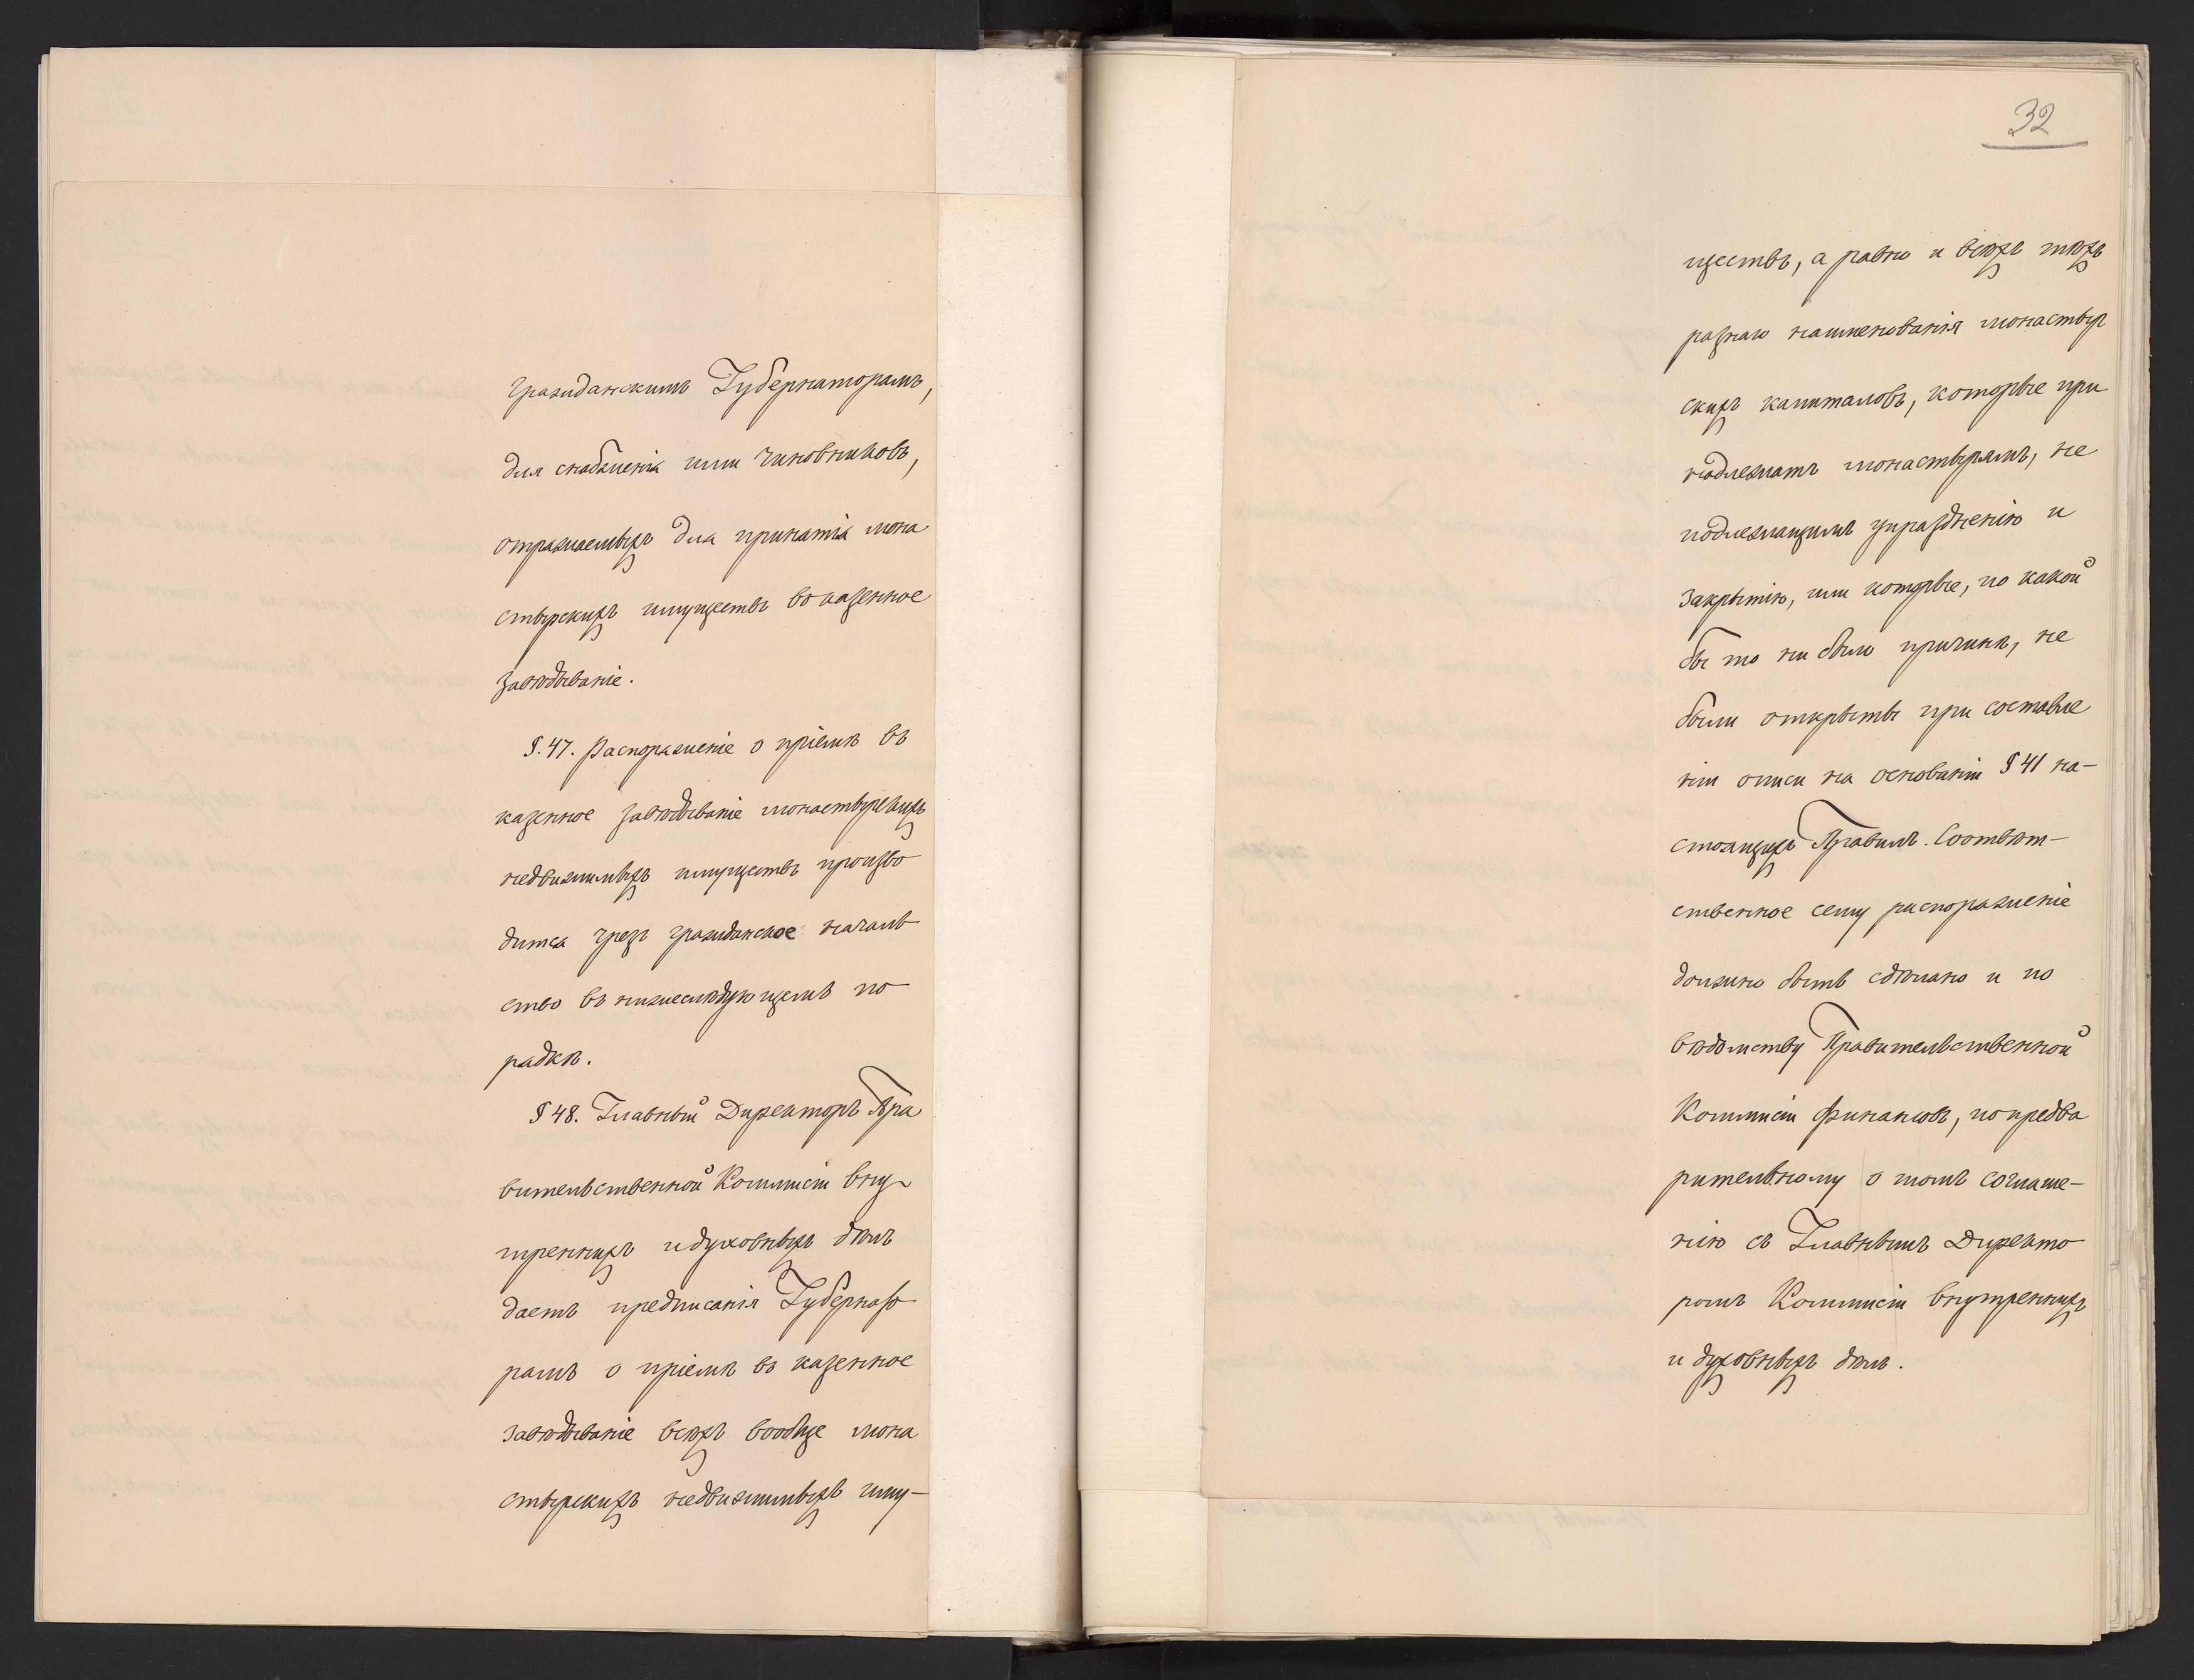 гражданскимъ Губернаторамъ,
для снабженія ими чиновниковъ,
отряжаемыхъ для принятія мона
стырскихъ имуществъ въ казенное
завѣдываніе.
§. 47. Распоряженіе о пріемѣ въ
казенное завѣдываніе монастырскихъ
недвижимыхъ имуществъ произво
дится чрезъ гражданское началь
ство въ нижеслѣдующемъ по
рядкѣ.
§ 48. Главный Директоръ Пра
вительственной Коммисіи вну
треннихъ и духовныхъ дѣлъ
даетъ предписанія Губернато
рамъ о пріемѣ въ казенное
завѣдываніе всѣхъ вообще мона
стырскихъ недвижимыхъ иму-
32
ществъ, а равно и всѣхъ тѣхъ
разнаго наименованія монастыр
скихъ капиталовъ, которые при
надлежатъ монастырямъ, не
подлежащимъ упраздненію и
закрытію, или которые, по какой
бы то ни было причинѣ, не
были открыты при составле
ніи описи на основаніи § 41 на-
стоящихъ Правилъ. Соотвѣт-
ственное сему распоряженіе
должно быть сдѣлано и по
вѣдомству Правительственной
Коммисіи Финансовъ, по предва
рительному о томъ соглаше-
нію съ Главнымъ Директо
ромъ Коммисіи внутреннихъ
и духовныхъ дѣлъ.